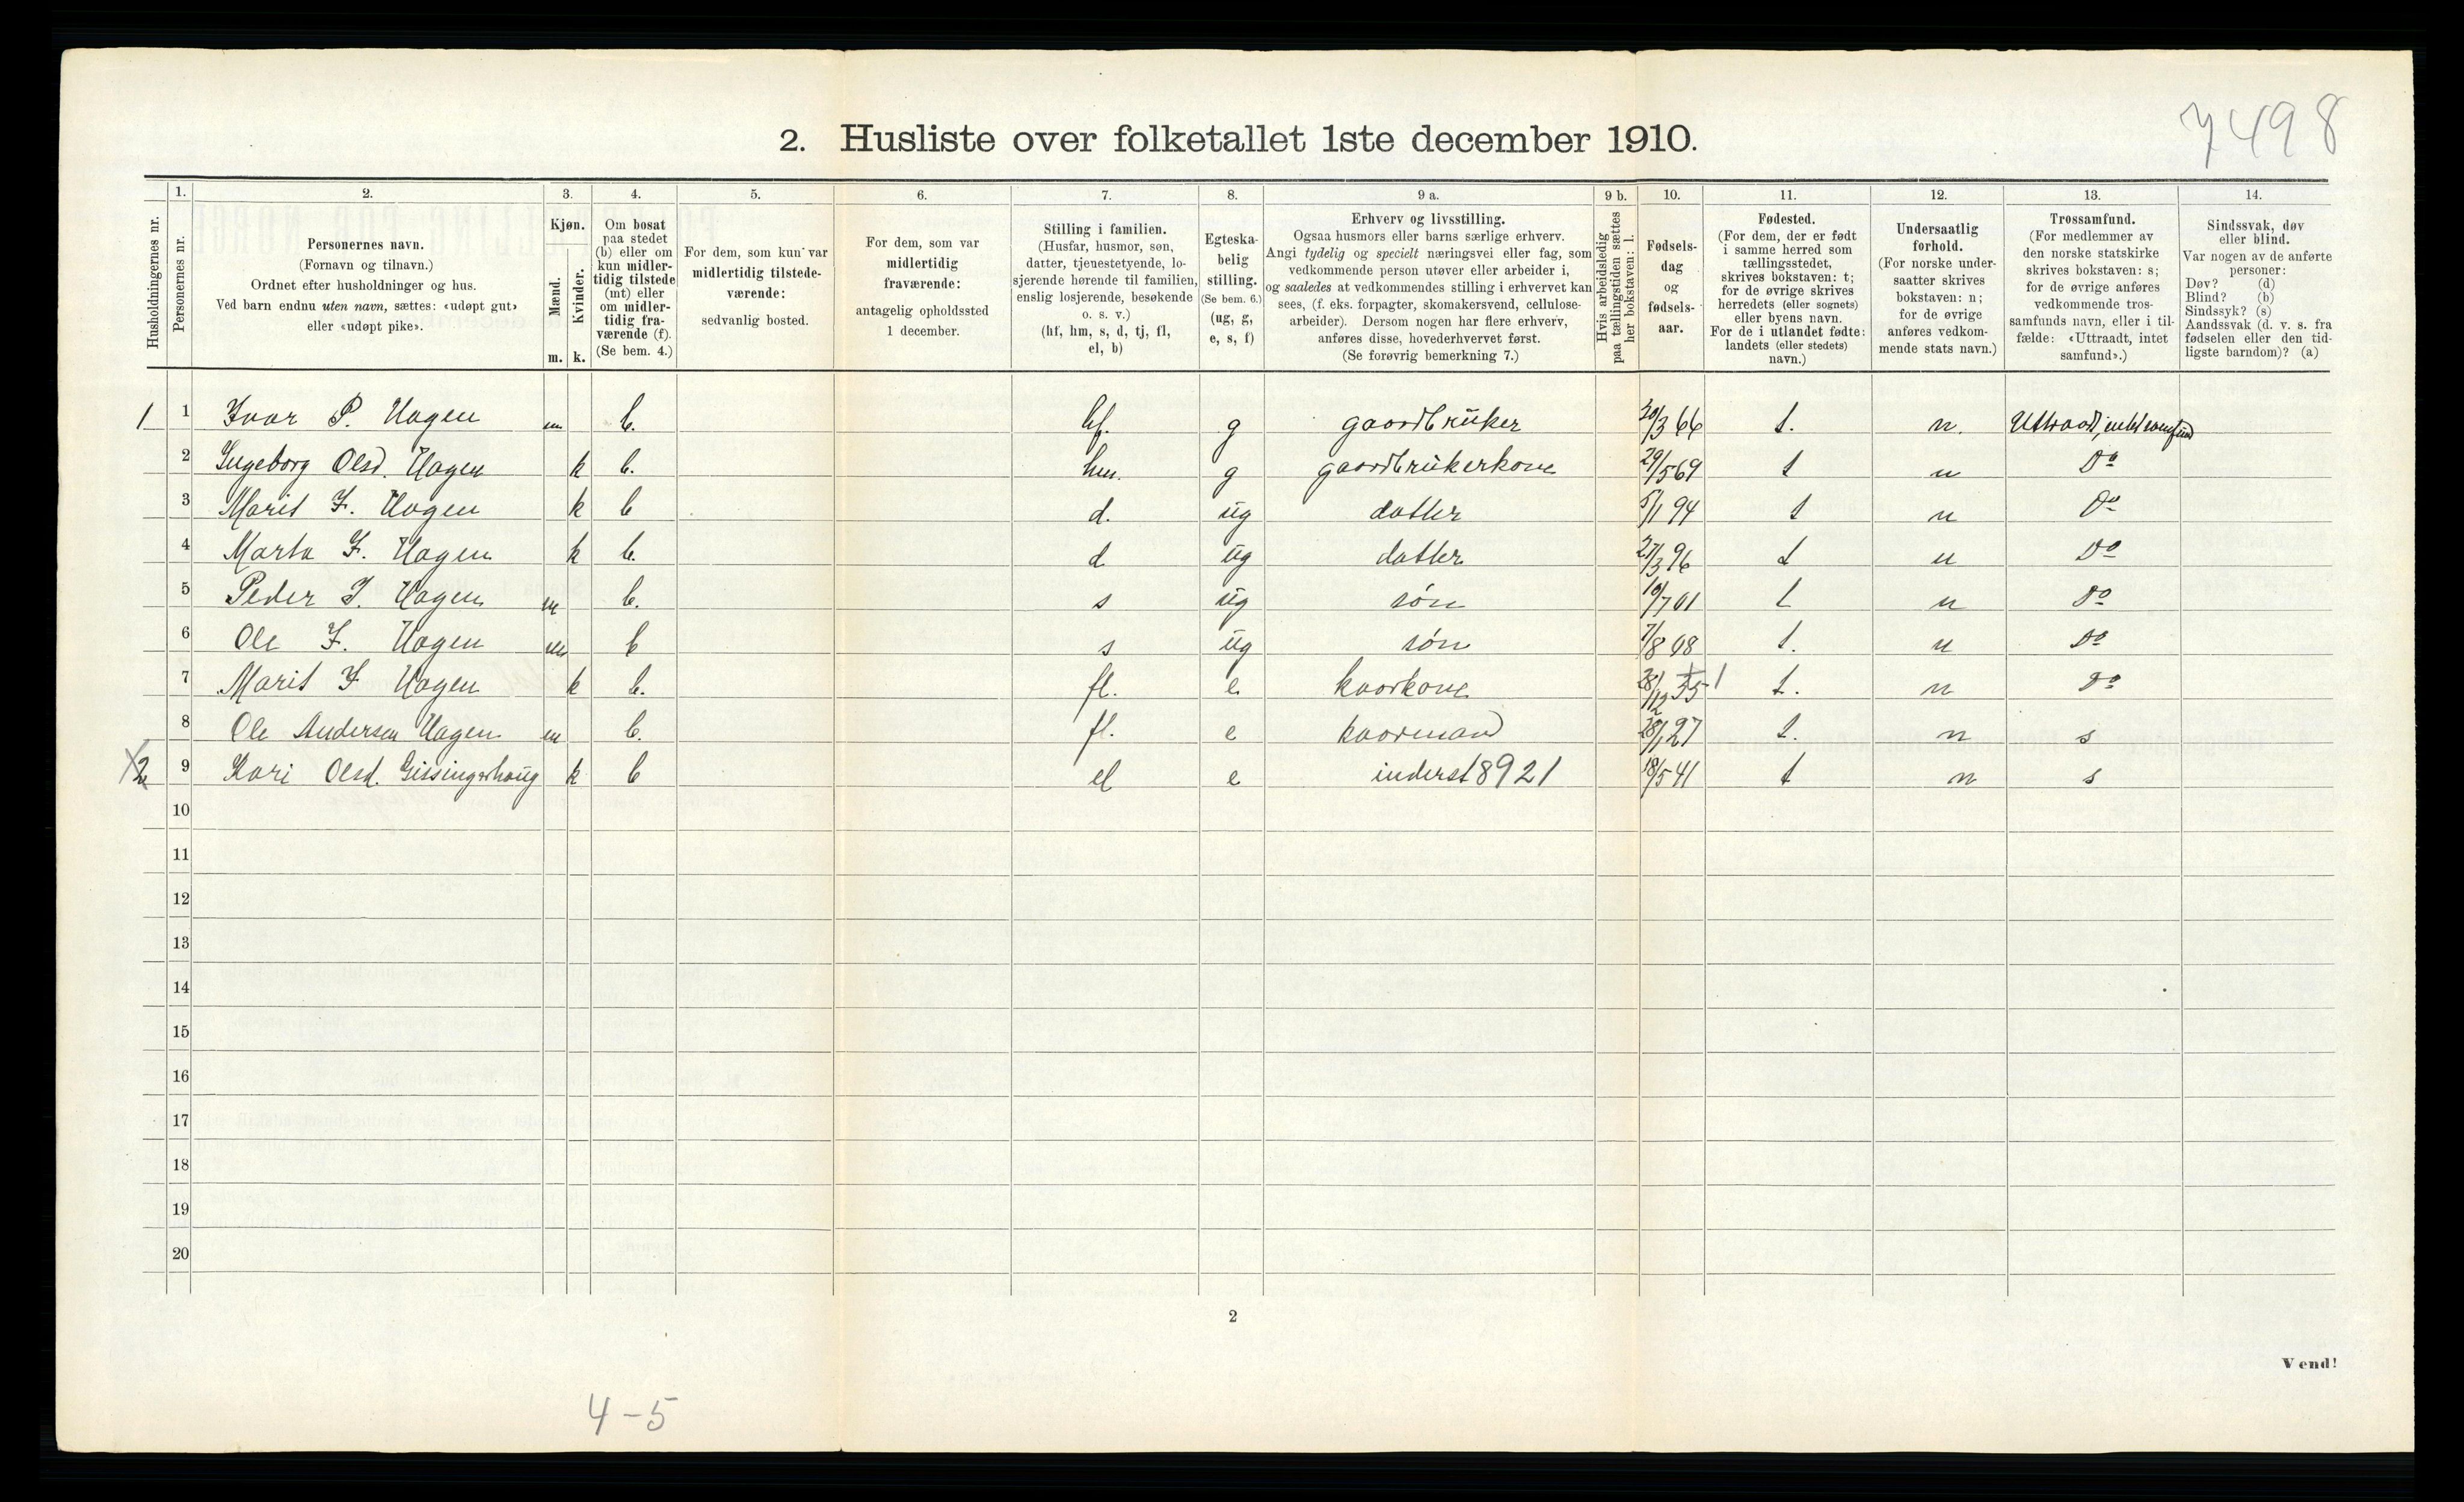 7498
2. Husliste over folketallet 1ste december 1910.
Husholdningernes nr.
1.
Personernes nr.
2.
Personernes navn.
(Fornavn og tilnavn.)
Ordnet efter husholdninger og hus.
Ved barn endnu uten navn, sættes: «udøpt gut»
eller «udøpt pike».
3.
Kjøn.
Mænd.
Kvinder.
m. k.
4.
Om bosat
paa stedet
(b) eller om
kun midler-
tidig tilstede
(mt) eller
om midler-
tidig fra-
værende (f).
(Se bem. 4.)
5.
For dem, som kun var
midlertidig tilstede-
værende:
sedvanlig bosted.
6.
For dem, som var
midlertidig
fraværende:
antagelig opholdssted
1 december.
7.
Stilling i familien.
(Husfar, husmor, søn,
datter, tjenestetyende, lo-
sjerende hørende til familien,
enslig losjerende, besøkende
o. s. v.)
(hf, hm, s, d, tj, fl,
el, b)
8.
Egteska-
belig
stilling.
(Se bem. 6.)
(ug, g,
e, s, f)
9 a.
Erhverv og livsstilling.
Ogsaa husmors eller barns særlige erhverv.
Angi tydelig og specielt næringsvei eller fag, som
vedkommende person utøver eller arbeider i,
og saaledes at vedkommendes stilling i erhvervet kan
sees, (f. eks. forpagter, skomakersvend, cellulose-
arbeider). Dersom nogen har flere erhverv,
anføres disse, hovederhvervet først.
(Se forøvrig bemerkning 7.)
9 b.
Hvis arbeidsledig
paa tællingstiden sættes
her bokstaven: l.
10.
Fødsels-
dag
og
fødsels-
aar.
11.
Fødested.
(For dem, der er født
i samme herred som
tællingsstedet,
skrives bokstaven: t;
for de øvrige skrives
herredets (eller sognets)
eller byens navn.
For de i utlandet fødte:
landets (eller stedets)
navn.)
12.
Undersaatlig
forhold.
(For norske under-
saatter skrives
bokstaven: n;
for de øvrige
anføres vedkom-
mende stats navn.)
13.
Trossamfund.
(For medlemmer av
den norske statskirke
skrives bokstaven: s;
for de øvrige anføres
vedkommende tros-
samfunds navn, eller i til-
fælde: «Uttraadt, intet
samfund».)
14.
Sindssvak, døv
eller blind.
Var nogen av de anførte
personer:
Døv? (d)
Blind? (b)
Sindssyk? (s)
Aandssvak (d. v. s. fra
fødselen eller den tid-
ligste barndom)? (a)
1 1 Ivar P. Hagen m b. hf. g gaardbruker 30/3 66 t. n. Uttraadt, intet samfund
2 Ingeborg Olsd. Hagen k b. hm. g gaardbrukerkone 29/5 69 t n Do
3 Marit I. Hagen k b d. ug datter 5/1 94 t n Do
4 Marta I. Hagen k b. d ug datter 27/3 96 t n Do
5 Peder I. Hagen m b. s ug søn 10/7 01 t n Do
6 Ole I. Hagen m b s ug søn 7/8 08 t. n Do
7 Marit I Hagen k b. fl. e kaarkone 28/12 35 t. n Do
8 Ole Andersen Hagen m b. fl. e kaarmand 28/1 27 t. n s
2 9 Kari Olsd. Gissingerhaug k b el e inderst 8921 18/5 41 t n s
10
11
12
13
14
15
16
17
18
19
20
2
Vend!
4-5